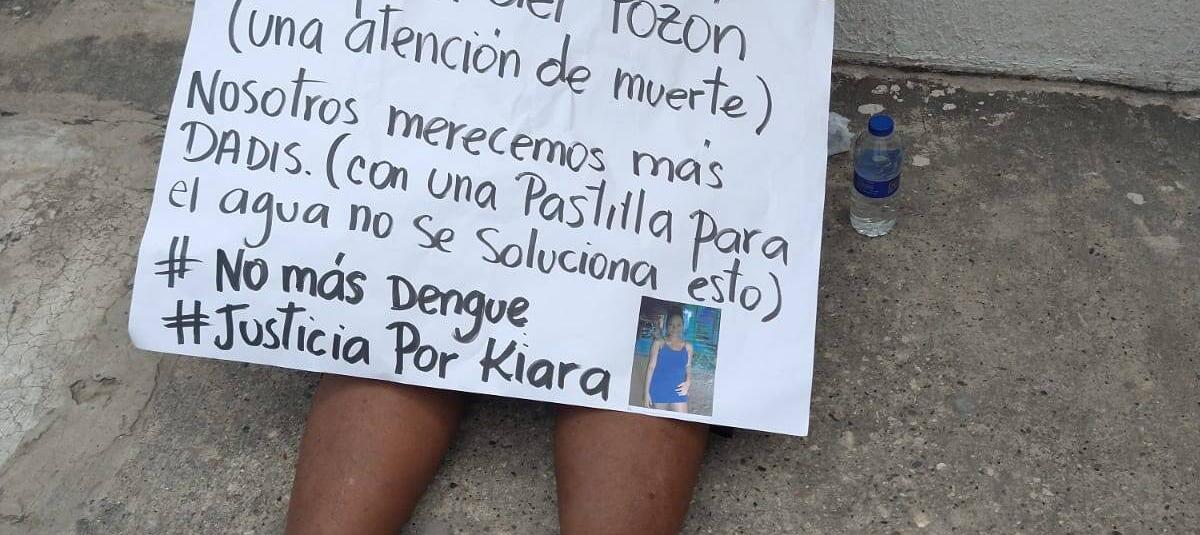 del Pozon
(una atención de muerte)
Nosotros merecemos más
DADIS. (con una Pastilla para
el agua no se soluciona esto)
# No más Dengue
#Justicia Por Kiara